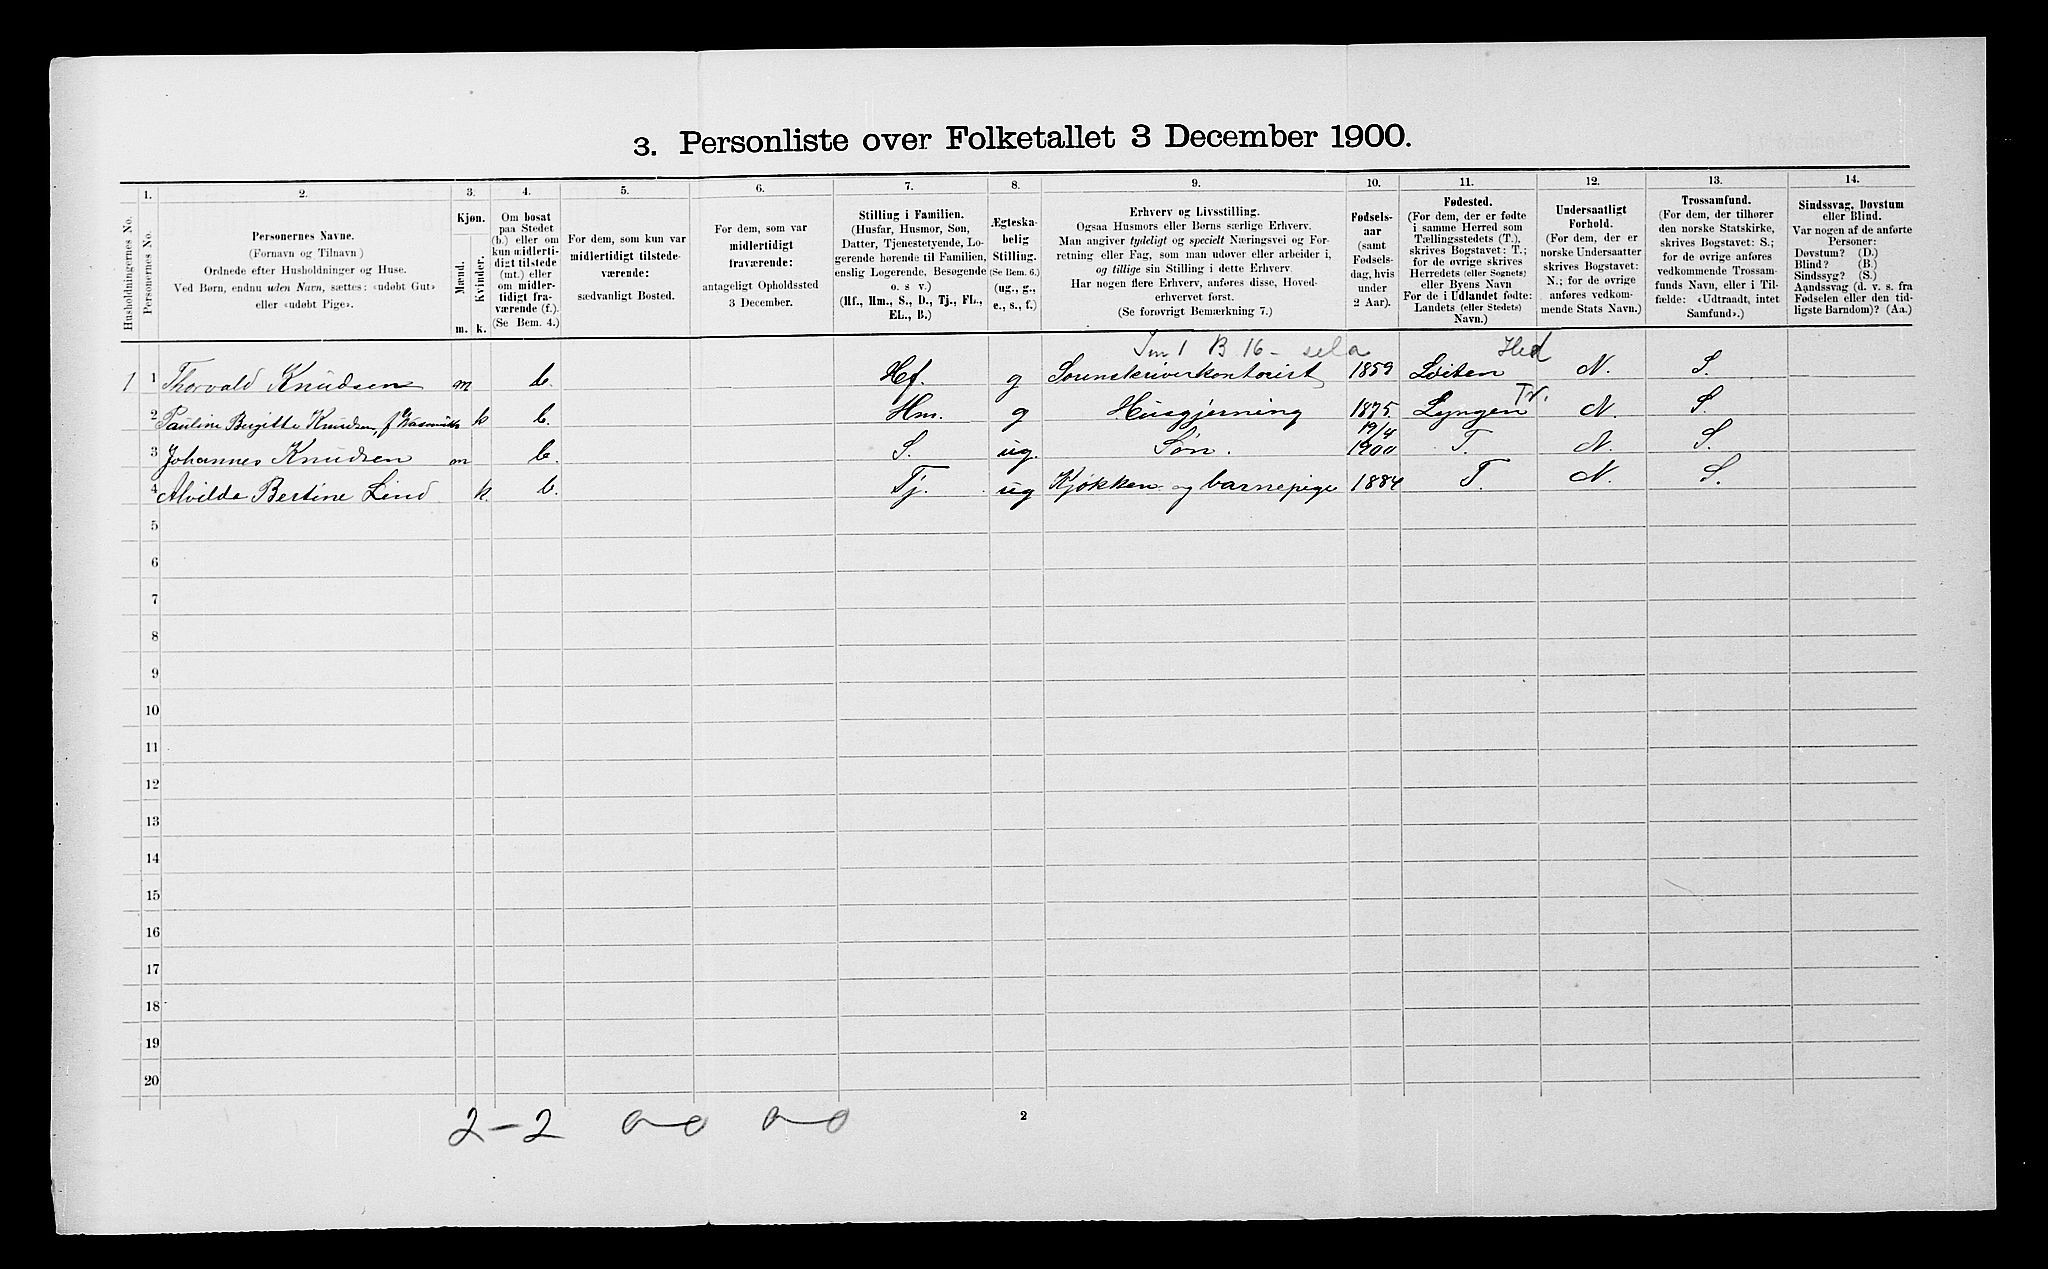 3. Personliste over Folketallet 3 December 1900.
1. 2. 3. 4. 5. 6. 7. 8. 9. 10. 11. 12. 13. 14.
Husholdningernes No.
Personernes No.
Personernes Navne.
(Fornavn og Tilnavn)
Ordnede efter Husholdninger og Huse.
Ved Børn, endnu uden Navn, sættes: «udøbt Gut»
eller «udøbt Pige».
Kjøn.
Mænd.
Kvinder.
m. k.
Om bosat
paa Stedet
(b.) eller om
kun midlerti-
digt tilstede
(mt.) eller
om midler-
tidigt fra-
værende (f.).
(Se Bem. 4.)
For dem, som kun var
midlertidigt tilstede-
værende:
sædvanligt Bosted.
For dem, som var
midlertidigt
fraværende:
antageligt Opholdssted
3 December.
Stilling i Familien.
(Husfar, Husmor, Søn,
Datter, Tjenestetyende, Lo-
gerende hørende til Familien,
enslig Logerende, Besøgende
o. s v.)
(Hf., Hm., S., D., Tj., FL.,
EL., B.)
Ægteska-
belig
Stilling.
(Se Bem. 6.)
(ug., g.,
e., s., f.)
Erhverv og Livsstilling.
Ogsaa Husmors eller Børns særlige Erhverv.
Man angiver tydeligt og specielt Næringsvei og For-
retning eller Fag, som man udøver eller arbeider i,
og tillige sin Stilling i dette Erhverv.
Har nogen flere Erhverv, anføres disse, Hoved-
erhvervet først.
(Se forøvrigt Bemærkning 7.)
Fødsels-
aar
(samt
Fødsels-
dag, hvis
under
2 Aar).
Fødested.
(For dem, der er fødte
i samme Herred som
Tællingsstedets (T.),
skrives Bogstavet: T.;
for de øvrige skrives
Herredets (eller Sognets)
eller Byens Navn
For de i Udlandet fødte:
Landets (eller Stedets)
Navn.)
Undersaatligt
Forhold.
(For dem, der er
norske Undersaatter
skrives Bogstavet:
N.; for de øvrige
anføres vedkom-
mende Stats Navn.)
Trossamfund.
(For dem, der tilhører
den norske Statskirke,
skrives Bogstavet: S.;
for de øvrige anføres
vedkommende Trossam-
funds Navn, eller i Til-
fælde: «Udtraadt, intet
Samfund».)
Sindssvag, Døvstum
eller Blind.
Var nogen af de anførte
Personer:
Døvstum? (D.)
Blind? (B.)
Sindssyg? (S.)
Aandssvag (d. v. s. fra
Fødselen eller den tid-
ligste Barndom)? (Aa.)
1 B 16 - Hed
1 1 Thorvald Knudsen m b. Hf. g Sorenskriverkontorist 1859 Löiten N. S.
Tr.
2 Pauline Birgitte Knudsen, f. k b. Hm. g Husgjerning 1875 Lyngen N. S.
19/4
3 Johannes Knudsen m b. S. ug. Søn. 1900 T. N. S.
4 Alvilda Bertine Lind k. b. Tj. ug Kjøkken- og barnepige 1884 T. N. S.
5
6
7
8
9
10
11
12
13
14
15
16
17
18
19
20
2-2 0-0 0-0
2